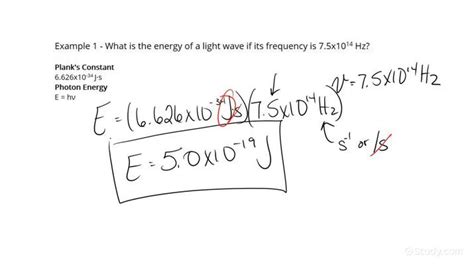 Example 1 - What is the energy of a light wave if its frequency is 7.5x10¹⁴ Hz?
Plank's Constant
6.626x10⁻³⁴ J·s
Photon Energy
E = hν
ν = 7.5x10¹⁴ Hz
E = (6.626x10⁻³⁴ Js)(7.5x10¹⁴ Hz)
s⁻¹ or /s
E = 5.0x10⁻¹⁹ J
Study.com